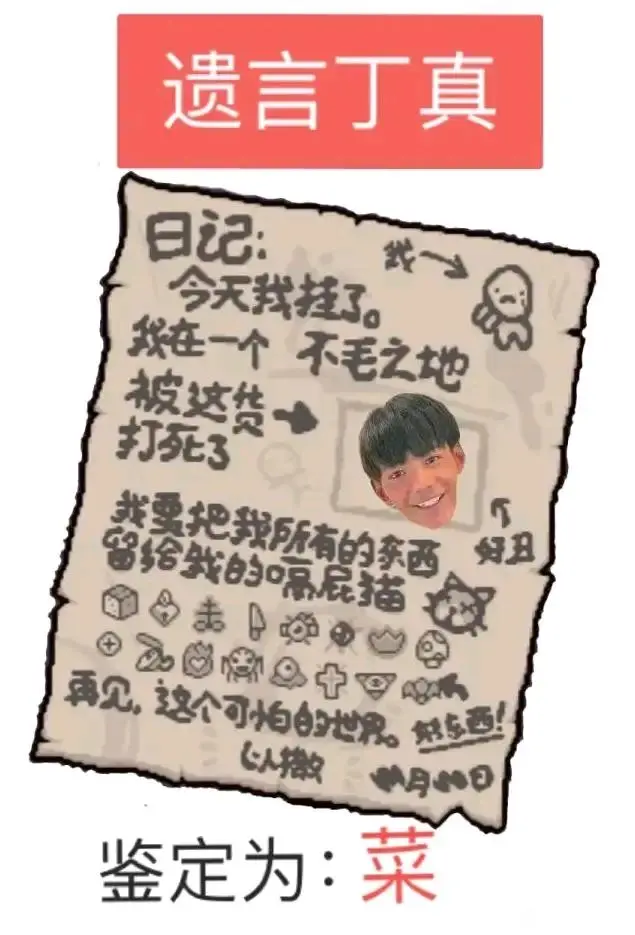 遗言丁真
日记:
我
今天我挂了。
我在一个 不毛之地
被这货
打死了
好丑
我要把我所有的东西
留给我的嗝屁猫
再见,这个可怕的世界。
好东西!
以撒
月 日
鉴定为:菜